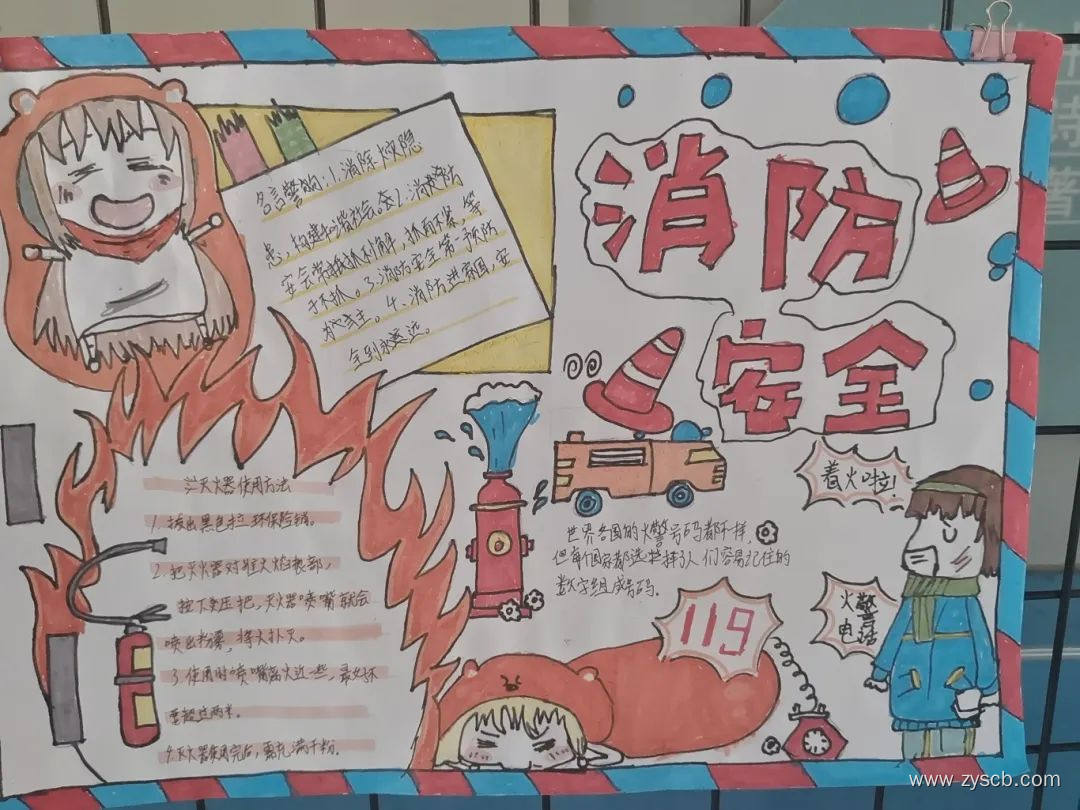 消防
安全
名言警句:1.消除火隐
患,构建和谐社会。2.消防
安会常抓不懈,抓而不紧,等
于不抓。3.消防安全第一预防
为主。4、消防进家国,安
全到永远。
灭火器使用方法
1.拔出黑色拉环保险销。
2.把灭火器对准火焰根部,
按下压把,灭火器喷嘴就会
喷出粉雾,将火扑灭。
3.使用时喷嘴离火近一些,最好不
要超过两米。
灭火器使用完后,要充满干粉。
世界各国的火警号码都不一样,
但每个国家都选择了人们容易记住的
数字组成号码.
119
着火啦!
火警
电话
www.zyscb.com